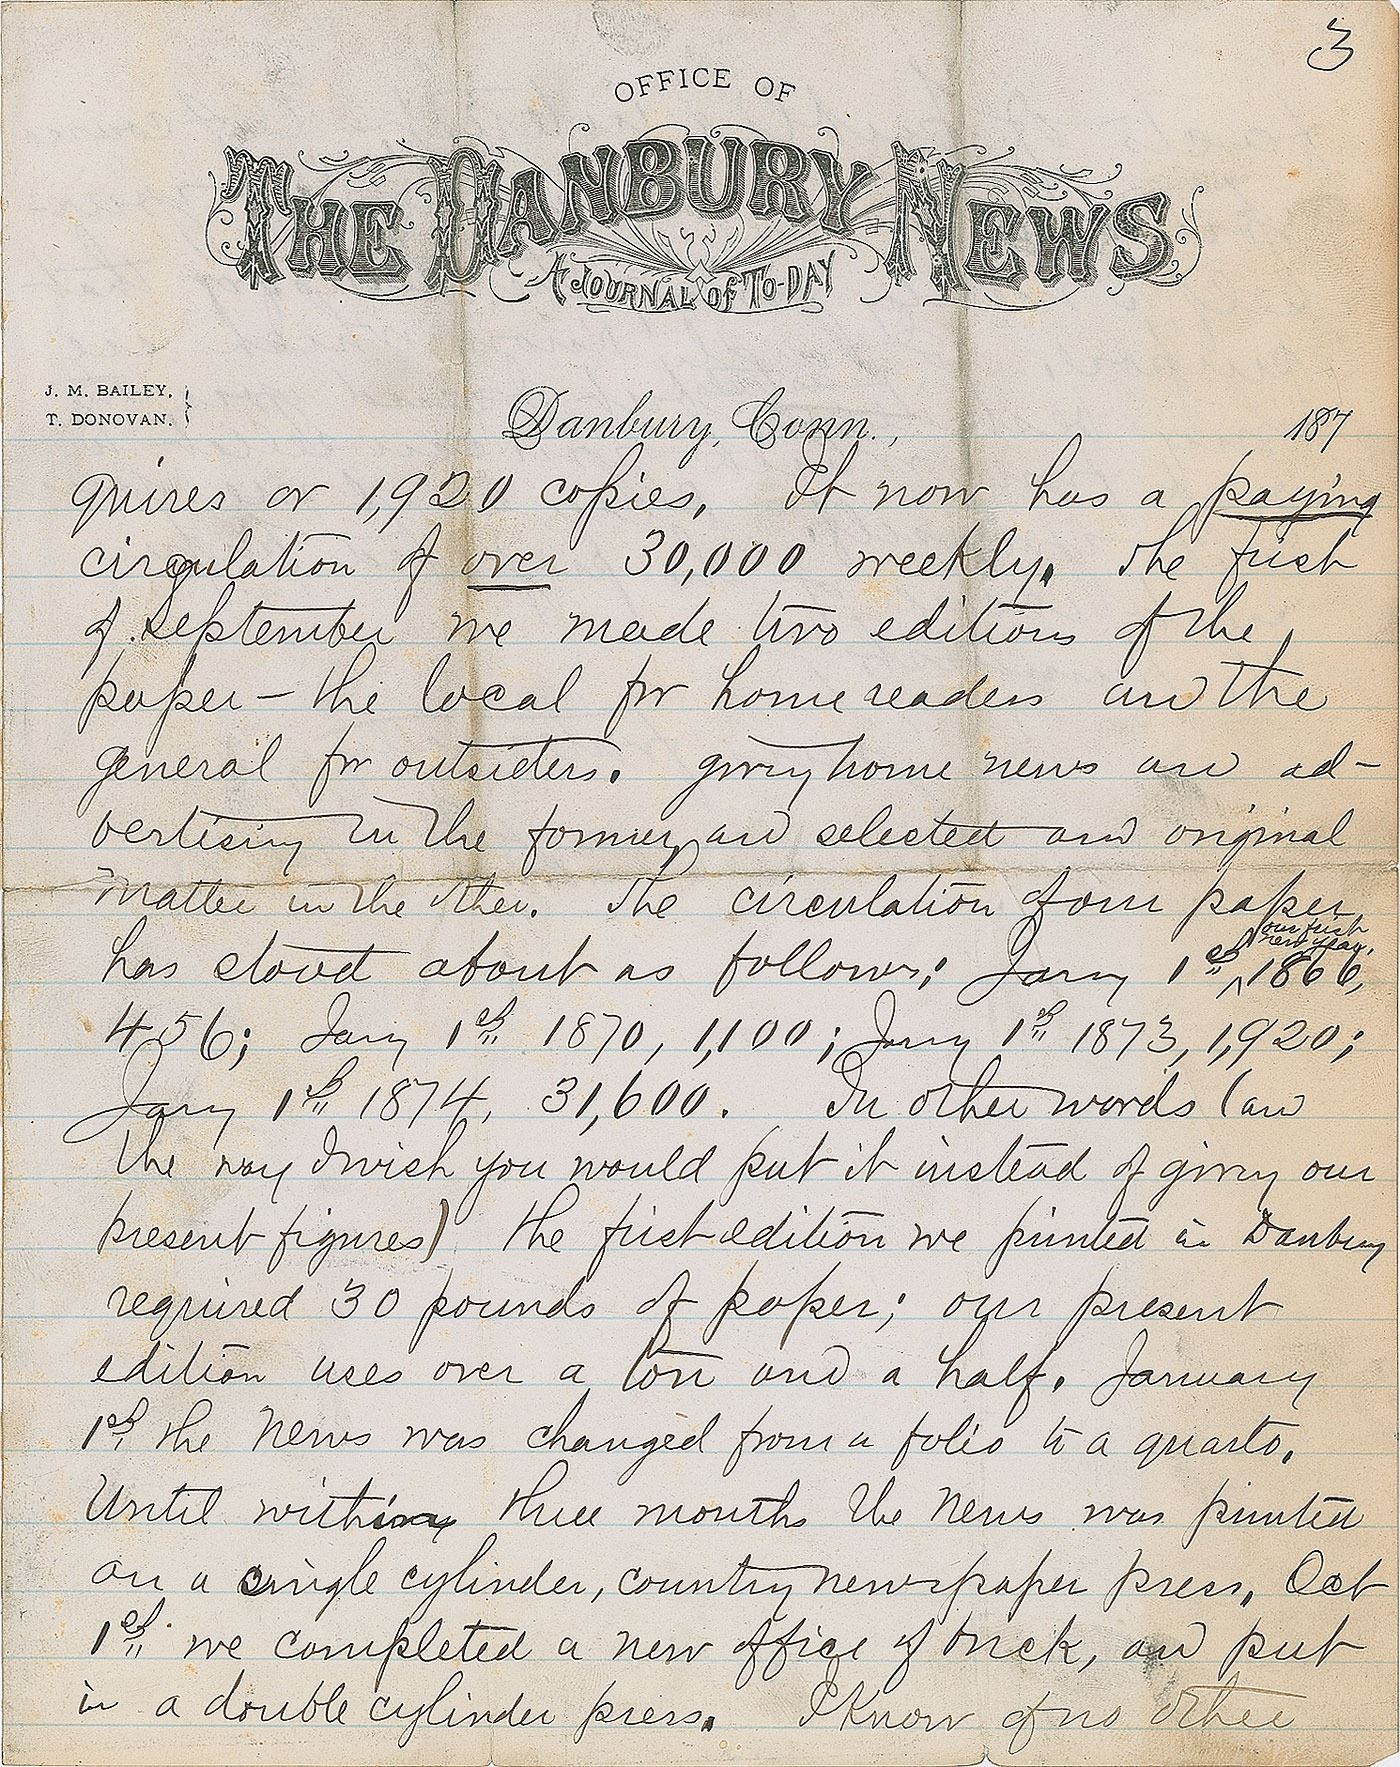 3
OFFICE OF
THE DANBURY NEWS
A JOURNAL OF TO-DAY
J. M. BAILEY,
T. DONOVAN.
Danbury, Conn., 187
quires or 1,920 copies. It now has a paying
circulation of over 30,000 weekly. The first
of September we made two editions of the
paper — the local for home readers and the
general for outsiders. giving home news and ad-
vertising in the former, and selected and original
matter in the other. The circulation of our paper
has stood about as follows: Jany 1st, our first new year, 1866,
456; Jany 1st 1870, 1,100; Jany 1st 1873, 1,920;
Jany 1st 1874, 31,600. In other words (and
the way I wish you would put it instead of giving our
present figures) the first edition we printed in Danbury
required 30 pounds of paper; our present
edition uses over a ton and a half. January
1st the News was changed from a folio to a quarto.
Until within three months the News was printed
on a single cylinder, country newspaper press. Oct
1st we completed a new office of brick, and put
in a double cylinder press. I know of no other